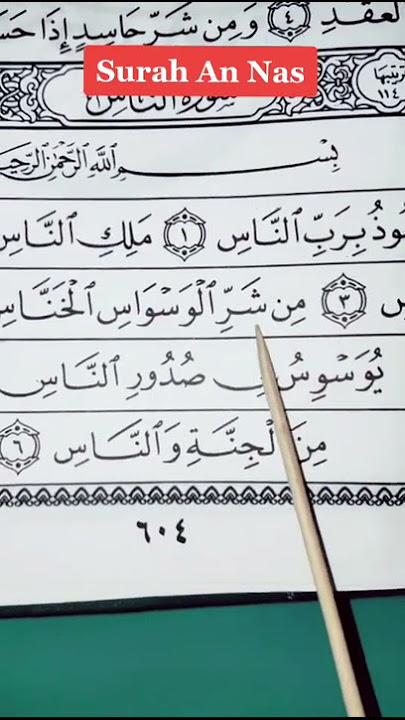 لعقد ٤ ومن شر حاسد إذا حس
Surah An Nas
سورة الناس
ترتيبها ١١٤
بسم الله الرحمن الرحي
وذ برب ٱلناس ١ ملك ٱلناس
س ٣ من شر ٱلوسواس ٱلخناس
يوسوس صدور ٱلناس
من وٱلناس ٦
٦٠٤